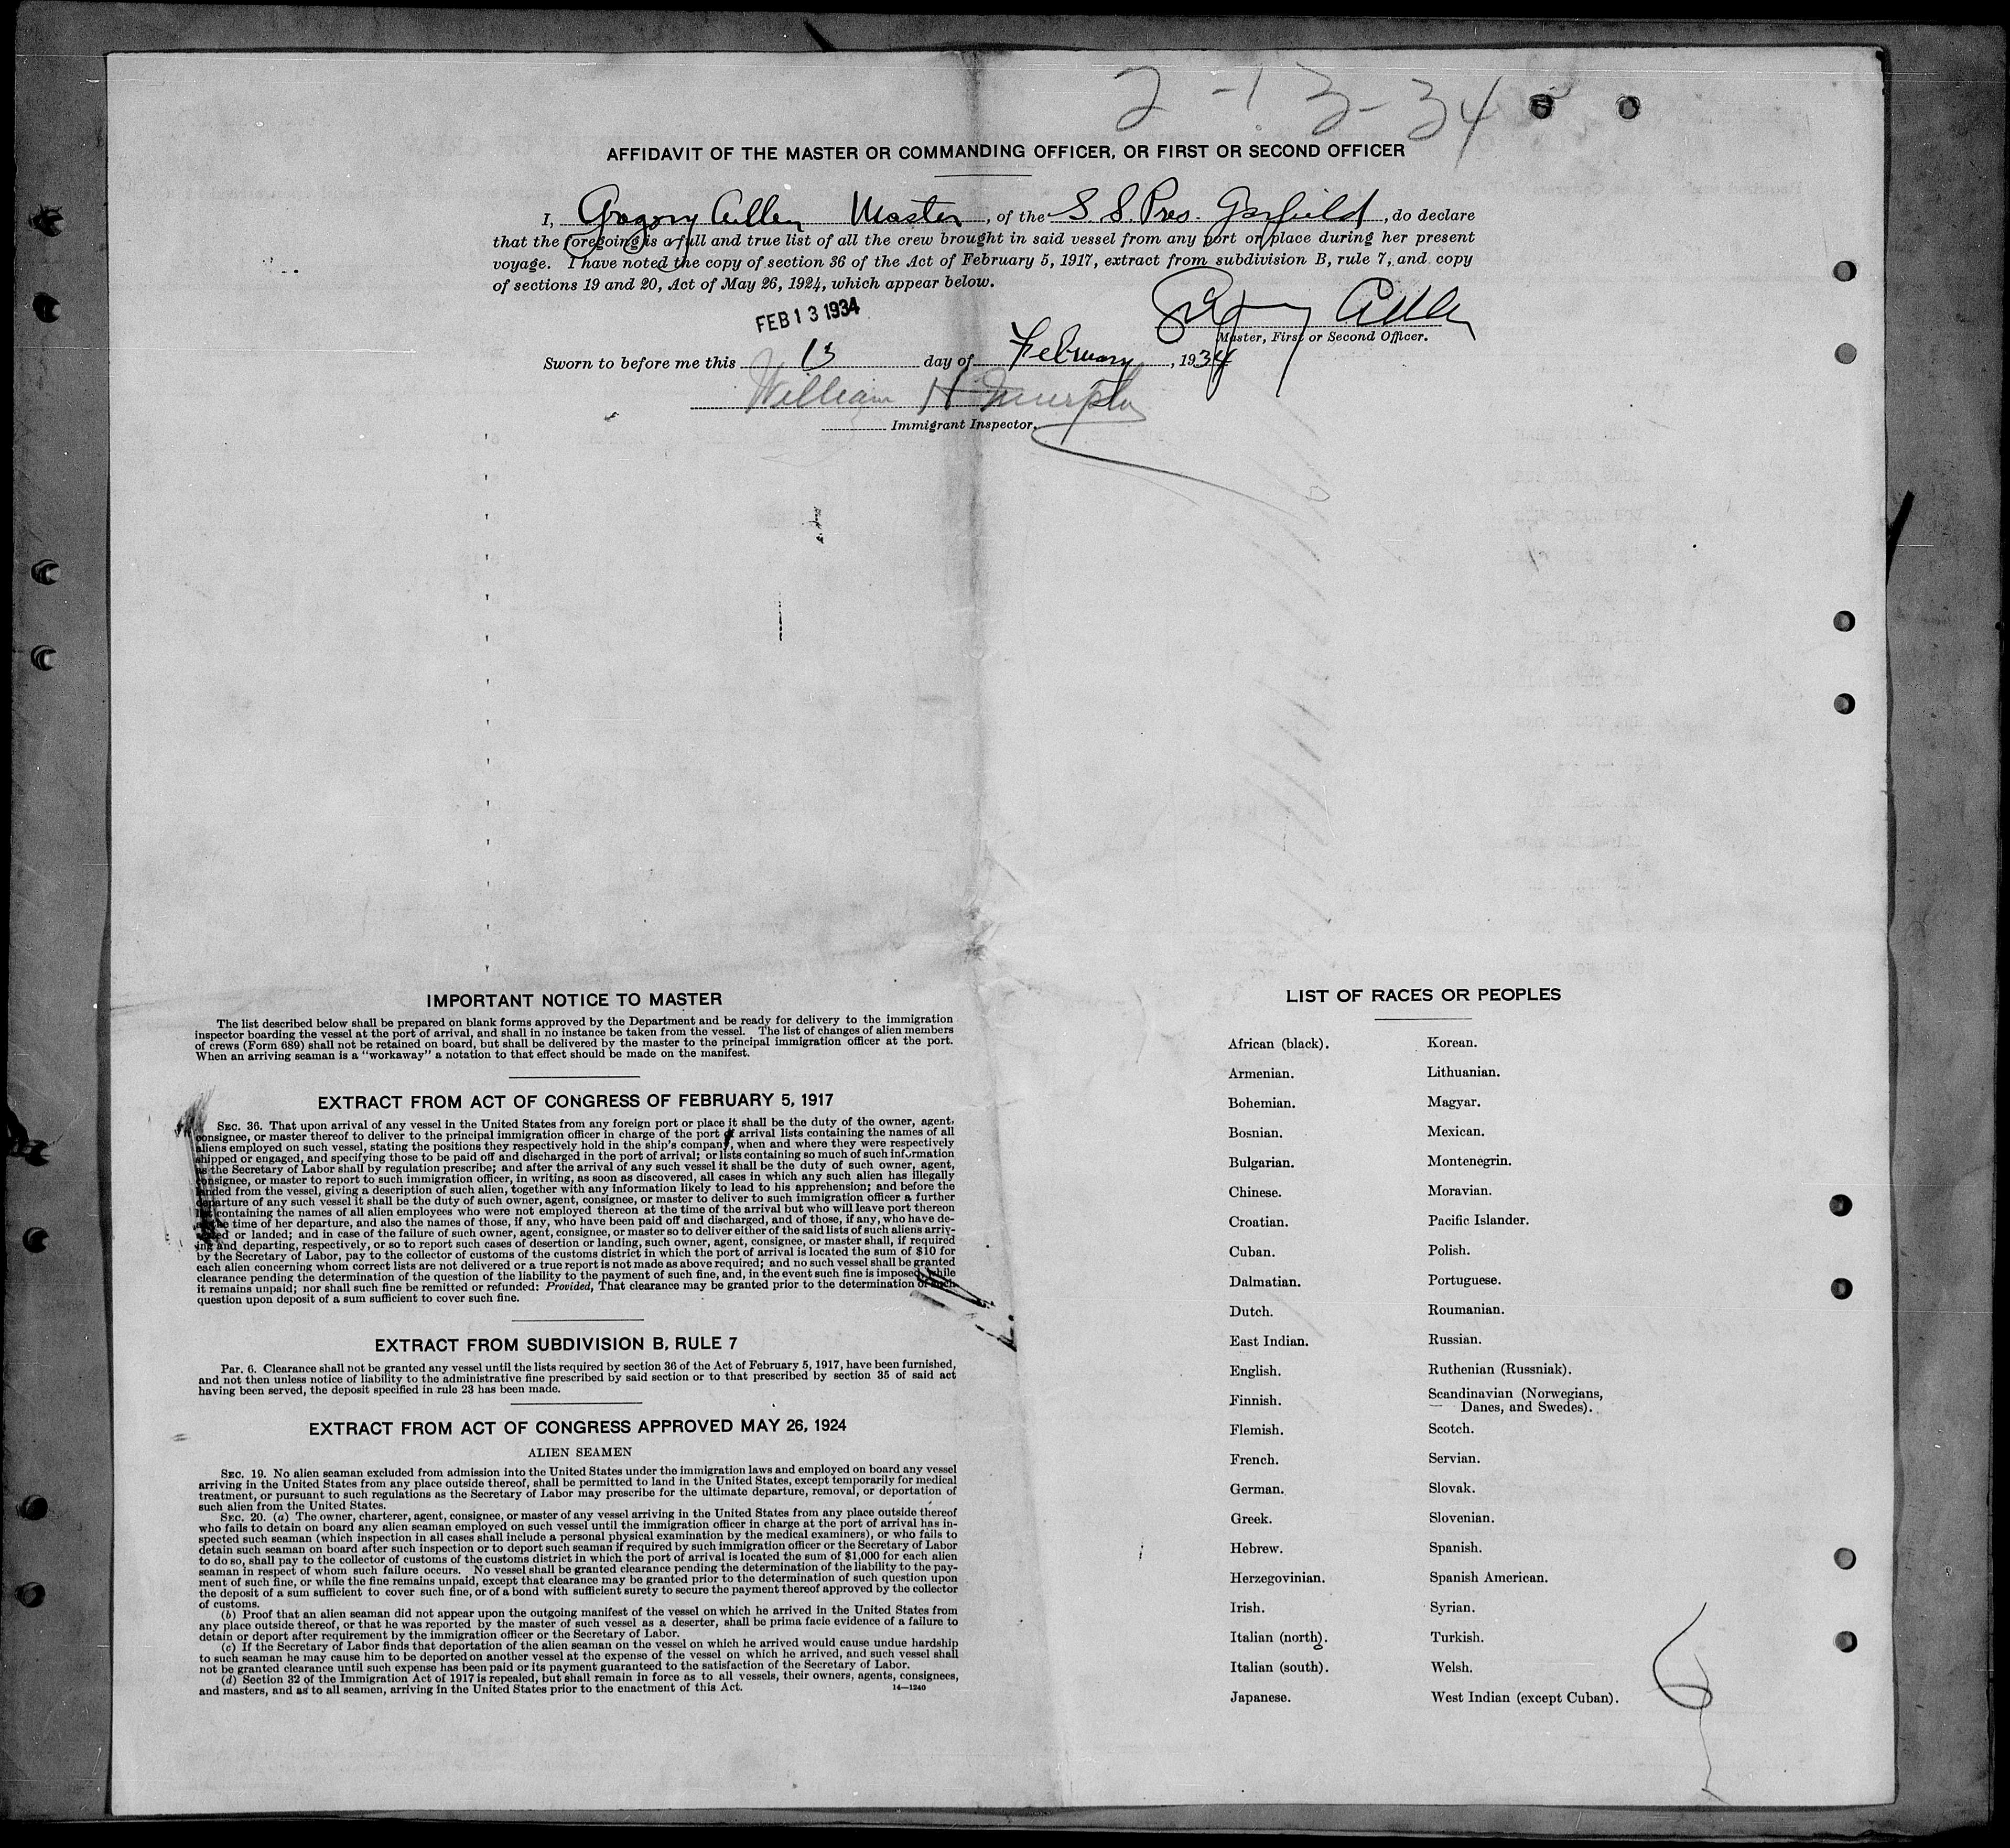 2-13-34
AFFIDAVIT OF THE MASTER OR COMMANDING OFFICER, OR FIRST OR SECOND OFFICER
I, Gregory Cullen Master, of the S. S. Pres. Garfield, do declare
that the foregoing is a full and true list of all the crew brought in said vessel from any port or place during her present
voyage. I have noted the copy of section 36 of the Act of February 5, 1917, extract from subdivision B, rule 7, and copy
of sections 19 and 20, Act of May 26, 1924, which appear below.
FEB 13 1934
Gregory Cullen
Master, First or Second Officer.
Sworn to before me this 13 day of February, 1934
William H. Murphy
Immigrant Inspector.
IMPORTANT NOTICE TO MASTER
The list described below shall be prepared on blank forms approved by the Department and be ready for delivery to the immigration
inspector boarding the vessel at the port of arrival, and shall in no instance be taken from the vessel. The list of changes of alien members
of crews (Form 689) shall not be retained on board, but shall be delivered by the master to the principal immigration officer at the port.
When an arriving seaman is a "workaway" a notation to that effect should be made on the manifest.
EXTRACT FROM ACT OF CONGRESS OF FEBRUARY 5, 1917
SEC. 36. That upon arrival of any vessel in the United States from any foreign port or place it shall be the duty of the owner, agent,
consignee, or master thereof to deliver to the principal immigration officer in charge of the port of arrival lists containing the names of all
aliens employed on such vessel, stating the positions they respectively hold in the ship's company, when and where they were respectively
shipped or engaged, and specifying those to be paid off and discharged in the port of arrival; or lists containing so much of such information
as the Secretary of Labor shall by regulation prescribe; and after the arrival of any such vessel it shall be the duty of such owner, agent,
consignee, or master to report to such immigration officer, in writing, as soon as discovered, all cases in which any such alien has illegally
landed from the vessel, giving a description of such alien, together with any information likely to lead to his apprehension; and before the
departure of any such vessel it shall be the duty of such owner, agent, consignee, or master to deliver to such immigration officer a further
list containing the names of all alien employees who were not employed thereon at the time of the arrival but who will leave port thereon
at the time of her departure, and also the names of those, if any, who have been paid off and discharged, and of those, if any, who have de-
serted or landed; and in case of the failure of such owner, agent, consignee, or master so to deliver either of the said lists of such aliens arriv-
ing and departing, respectively, or so to report such cases of desertion or landing, such owner, agent, consignee, or master shall, if required
by the Secretary of Labor, pay to the collector of customs of the customs district in which the port of arrival is located the sum of $10 for
each alien concerning whom correct lists are not delivered or a true report is not made as above required; and no such vessel shall be granted
clearance pending the determination of the question of the liability to the payment of such fine, and, in the event such fine is imposed, while
it remains unpaid; nor shall such fine be remitted or refunded: Provided, That clearance may be granted prior to the determination of such
question upon deposit of a sum sufficient to cover such fine.
EXTRACT FROM SUBDIVISION B, RULE 7
Par. 6. Clearance shall not be granted any vessel until the lists required by section 36 of the Act of February 5, 1917, have been furnished,
and not then unless notice of liability to the administrative fine prescribed by said section or to that prescribed by section 35 of said act
having been served, the deposit specified in rule 23 has been made.
EXTRACT FROM ACT OF CONGRESS APPROVED MAY 26, 1924
ALIEN SEAMEN
SEC. 19. No alien seaman excluded from admission into the United States under the immigration laws and employed on board any vessel
arriving in the United States from any place outside thereof, shall be permitted to land in the United States, except temporarily for medical
treatment, or pursuant to such regulations as the Secretary of Labor may prescribe for the ultimate departure, removal, or deportation of
such alien from the United States.
SEC. 20. (a) The owner, charterer, agent, consignee, or master of any vessel arriving in the United States from any place outside thereof
who fails to detain on board any alien seaman employed on such vessel until the immigration officer in charge at the port of arrival has in-
spected such seaman (which inspection in all cases shall include a personal physical examination by the medical examiners), or who fails to
detain such seaman on board after such inspection or to deport such seaman if required by such immigration officer or the Secretary of Labor
to do so, shall pay to the collector of customs of the customs district in which the port of arrival is located the sum of $1,000 for each alien
seaman in respect of whom such failure occurs. No vessel shall be granted clearance pending the determination of the liability to the pay-
ment of such fine, or while the fine remains unpaid, except that clearance may be granted prior to the determination of such question upon
the deposit of a sum sufficient to cover such fine, or of a bond with sufficient surety to secure the payment thereof approved by the collector
of customs.
(b) Proof that an alien seaman did not appear upon the outgoing manifest of the vessel on which he arrived in the United States from
any place outside thereof, or that he was reported by the master of such vessel as a deserter, shall be prima facie evidence of a failure to
detain or deport after requirement by the immigration officer or the Secretary of Labor.
(c) If the Secretary of Labor finds that deportation of the alien seaman on the vessel on which he arrived would cause undue hardship
to such seaman he may cause him to be deported on another vessel at the expense of the vessel on which he arrived, and such vessel shall
not be granted clearance until such expense has been paid or its payment guaranteed to the satisfaction of the Secretary of Labor.
(d) Section 32 of the Immigration Act of 1917 is repealed, but shall remain in force as to all vessels, their owners, agents, consignees,
and masters, and as to all seamen, arriving in the United States prior to the enactment of this Act.
14—1240
LIST OF RACES OR PEOPLES
African (black).
Armenian.
Bohemian.
Bosnian.
Bulgarian.
Chinese.
Croatian.
Cuban.
Dalmatian.
Dutch.
East Indian.
English.
Finnish.
Flemish.
French.
German.
Greek.
Hebrew.
Herzegovinian.
Irish.
Italian (north).
Italian (south).
Japanese.
Korean.
Lithuanian.
Magyar.
Mexican.
Montenegrin.
Moravian.
Pacific Islander.
Polish.
Portuguese.
Roumanian.
Russian.
Ruthenian (Russniak).
Scandinavian (Norwegians,
Danes, and Swedes).
Scotch.
Servian.
Slovak.
Slovenian.
Spanish.
Spanish American.
Syrian.
Turkish.
Welsh.
West Indian (except Cuban).